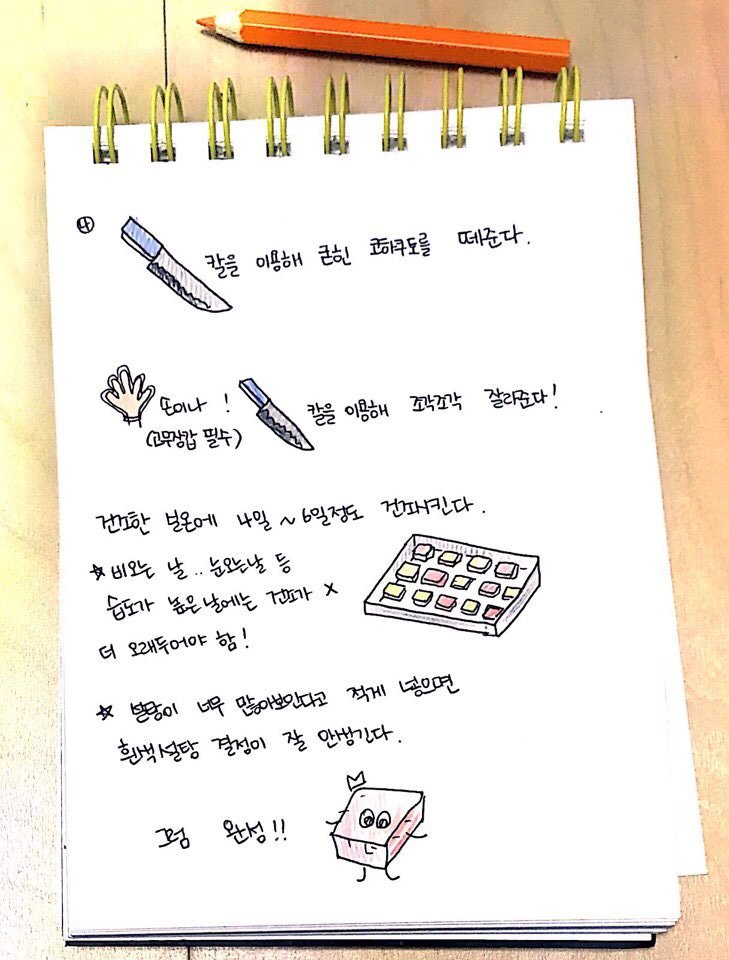 ④
칼을 이용해 굳힌 코하쿠토를 떼준다.
손이나 !
(고무장갑 필수)
칼을 이용해 조각조각 잘라준다!
건조한 실온에 4일 ~ 6일정도 건조시킨다.
☆ 비오는 날.. 눈오는날 등
습도가 높은날에는 건조가 X
더 오래두어야 함!
☆ 설탕이 너무 많아보인다고 적게 넣으면
흰색설탕 결정이 잘 안생긴다.
그럼 완성!!